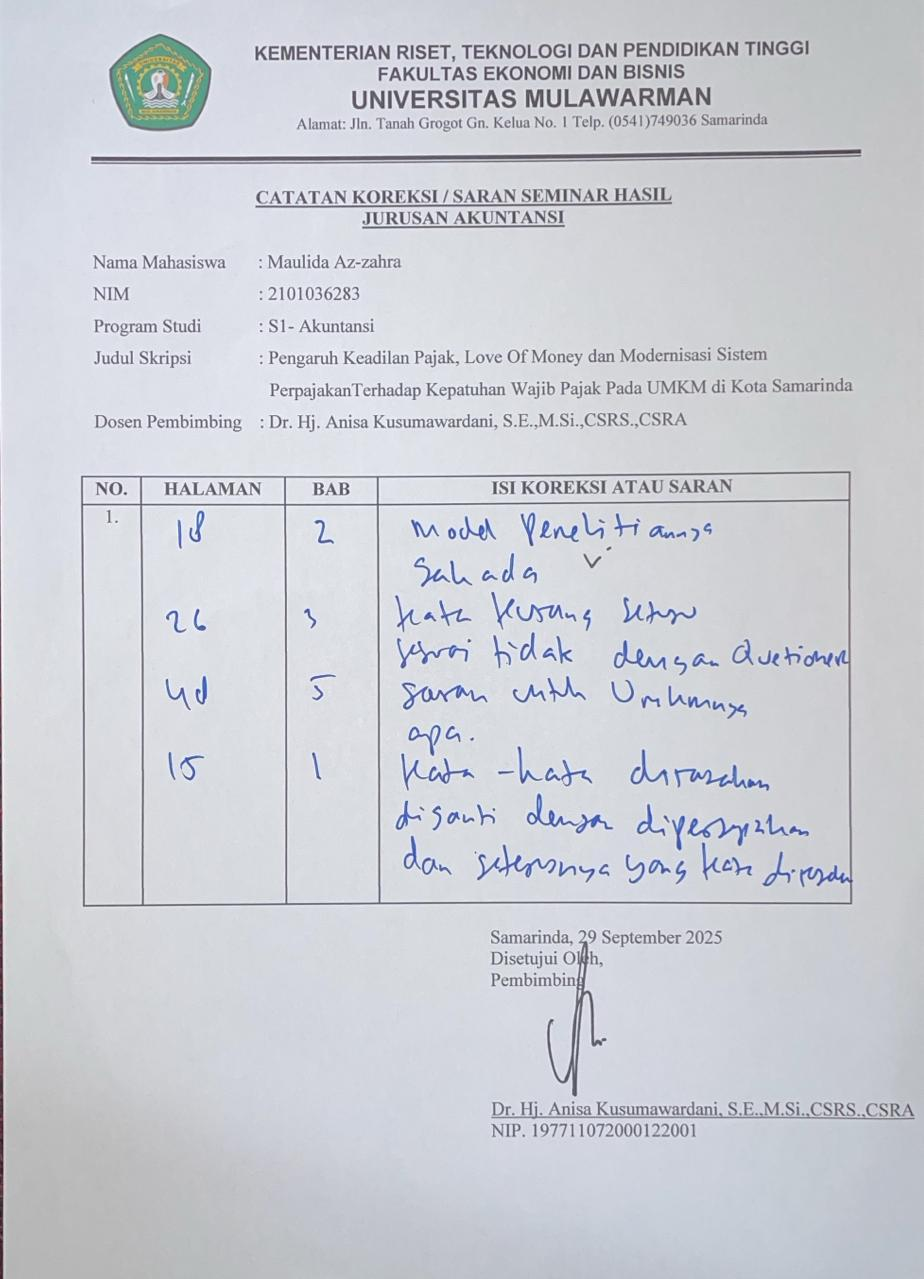 KEMENTERIAN RISET, TEKNOLOGI DAN PENDIDIKAN TINGGI
FAKULTAS EKONOMI DAN BISNIS
UNIVERSITAS MULAWARMAN
Alamat: Jln. Tanah Grogot Gn. Kelua No. 1 Telp. (0541)749036 Samarinda
CATATAN KOREKSI / SARAN SEMINAR HASIL
JURUSAN AKUNTANSI
Nama Mahasiswa : Maulida Az-zahra
NIM : 2101036283
Program Studi : S1- Akuntansi
Judul Skripsi : Pengaruh Keadilan Pajak, Love Of Money dan Modernisasi Sistem
PerpajakanTerhadap Kepatuhan Wajib Pajak Pada UMKM di Kota Samarinda
Dosen Pembimbing : Dr. Hj. Anisa Kusumawardani, S.E.,M.Si.,CSRS.,CSRA
NO. HALAMAN BAB ISI KOREKSI ATAU SARAN
1. 18 2 Model Penelitiannya
26 3 kata kurang
sesuai tidak dengan
5 saran untuk Umkmnya
apa.
15 1 Kata-kata dirasakan
diganti dengan
dan seterusnya yang kata
Samarinda, 29 September 2025
Disetujui Oleh,
Pembimbing
Dr. Hj. Anisa Kusumawardani, S.E.,M.Si.,CSRS.,CSRA
NIP. 197711072000122001